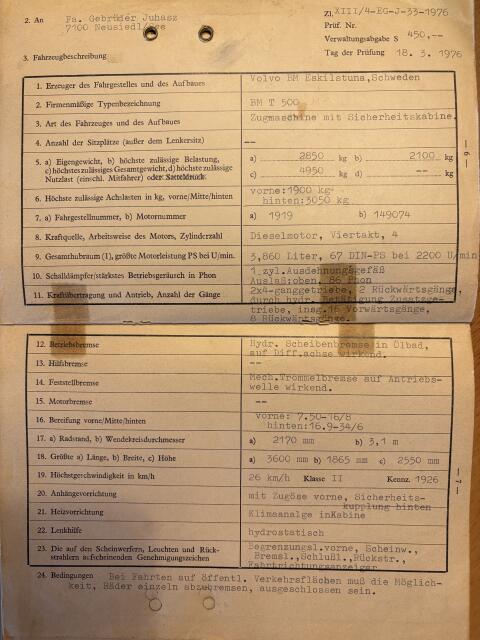 2. An Fa. Gebrüder Juhasz
7100 Neusiedl/See
Zl. XIII/4-EG-J-33-1976
Prüf. Nr.
Verwaltungsabgabe S 450,--
Tag der Prüfung 18. 3. 1976
3. Fahrzeugbeschreibung
1. Erzeuger des Fahrgestelles und des Aufbaues Volvo BM Eskilstuna,Schweden
2. Firmenmäßige Typenbezeichnung BM T 500
3. Art des Fahrzeuges und des Aufbaues Zugmaschine mit Sicherheitskabine.
4. Anzahl der Sitzplätze (außer dem Lenkersitz) --
5. a) Eigengewicht, b) höchste zulässige Belastung, a) 2850 kg b) 2100 kg
c) höchstes zulässiges Gesamtgewicht, d) höchst zulässige
Nutzlast (einschl. Mitfahrer) oder Satteldruck c) 4950 kg d) -- kg
6. Höchste zulässige Achslasten in kg, vorne/Mitte/hinten vorne:1900 kg
hinten:3050 kg
7. a) Fahrgestellnummer, b) Motornummer a) 1919 b) 149074
8. Kraftquelle, Arbeitsweise des Motors, Zylinderzahl Dieselmotor, Viertakt, 4
9. Gesamthubraum (l), größte Motorleistung PS bei U/min. 3,860 Liter, 67 DIN-PS bei 2200 U/min
10. Schalldämpfer/stärkstes Betriebsgeräusch in Phon 1 zyl.Ausdehnungsgefäß
Auslaß:oben, 86 Phon
11. Kraftübertragung und Antrieb, Anzahl der Gänge 2x4-ganggetriebe, 2 Rückwärtsgänge,
durch hydr. Betätigung Zusatzge-
triebe, insg.16 Vorwärtsgänge,
8 Rückwärtsgänge.
- 6 -
12. Betriebsbremse Hydr. Scheibenbremse in Ölbad,
auf Diff.achse wirkend.
13. Hilfsbremse --
14. Feststellbremse Mech.Trommelbremse auf Antriebs-
welle wirkend.
15. Motorbremse --
16. Bereifung vorne/Mitte/hinten vorne: 7.50-16/8
hinten:16.9-34/6
17. a) Radstand, b) Wendekreisdurchmesser a) 2170 mm b) 3,1 m
18. Größte a) Länge, b) Breite, c) Höhe a) 3600 mm b) 1865 mm c) 2550 mm
19. Höchstgeschwindigkeit in km/h 26 km/h Klasse II Kennz. 1926
20. Anhängevorrichtung mit Zugöse vorne, Sicherheits-
kupplung hinten
21. Heizvorrichtung Klimaanalge inKabine
22. Lenkhilfe hydrostatisch
23. Die auf den Scheinwerfern, Leuchten und Rück-
strahlern aufscheinenden Genehmigungszeichen Begrenzungsl.vorne, Scheinw.,
Bremsl.,Schlußl.,Rückstr.,
Fahrtrichtungsanzeiger
- 7 -
24. Bedingungen Bei Fahrten auf öffentl. Verkehrsflächen muß die Möglich-
keit, Räder einzeln abzubremsen, ausgeschlossen sein.